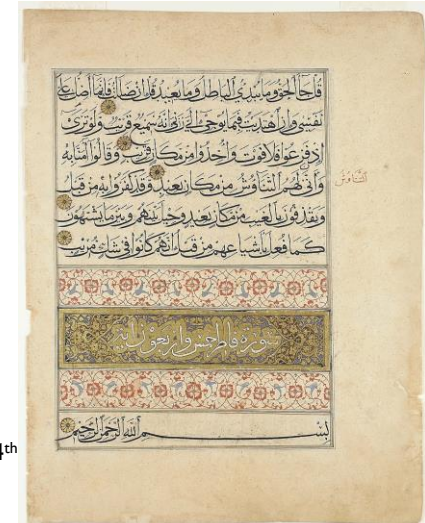 قل جاء الحق وما يبدئ الباطل وما يعيد قل إن ضللت فإنما أضل على
نفسي وإن اهتديت فبما يوحي إلي ربي إنه سميع قريب ولو ترى
إذ فزعوا فلا فوت وأخذوا من مكان قريب وقالوا آمنا به
وأنى لهم التناوش من مكان بعيد وقد كفروا به من قبل
التناوش
ويقذفون بالغيب من مكان بعيد وحيل بينهم وبين ما يشتهون
كما فعل بأشياعهم من قبل إنهم كانوا في شك مريب
سورة فاطر خمس وأربعون آية
بسم الله الرحمن الرحيم
4th